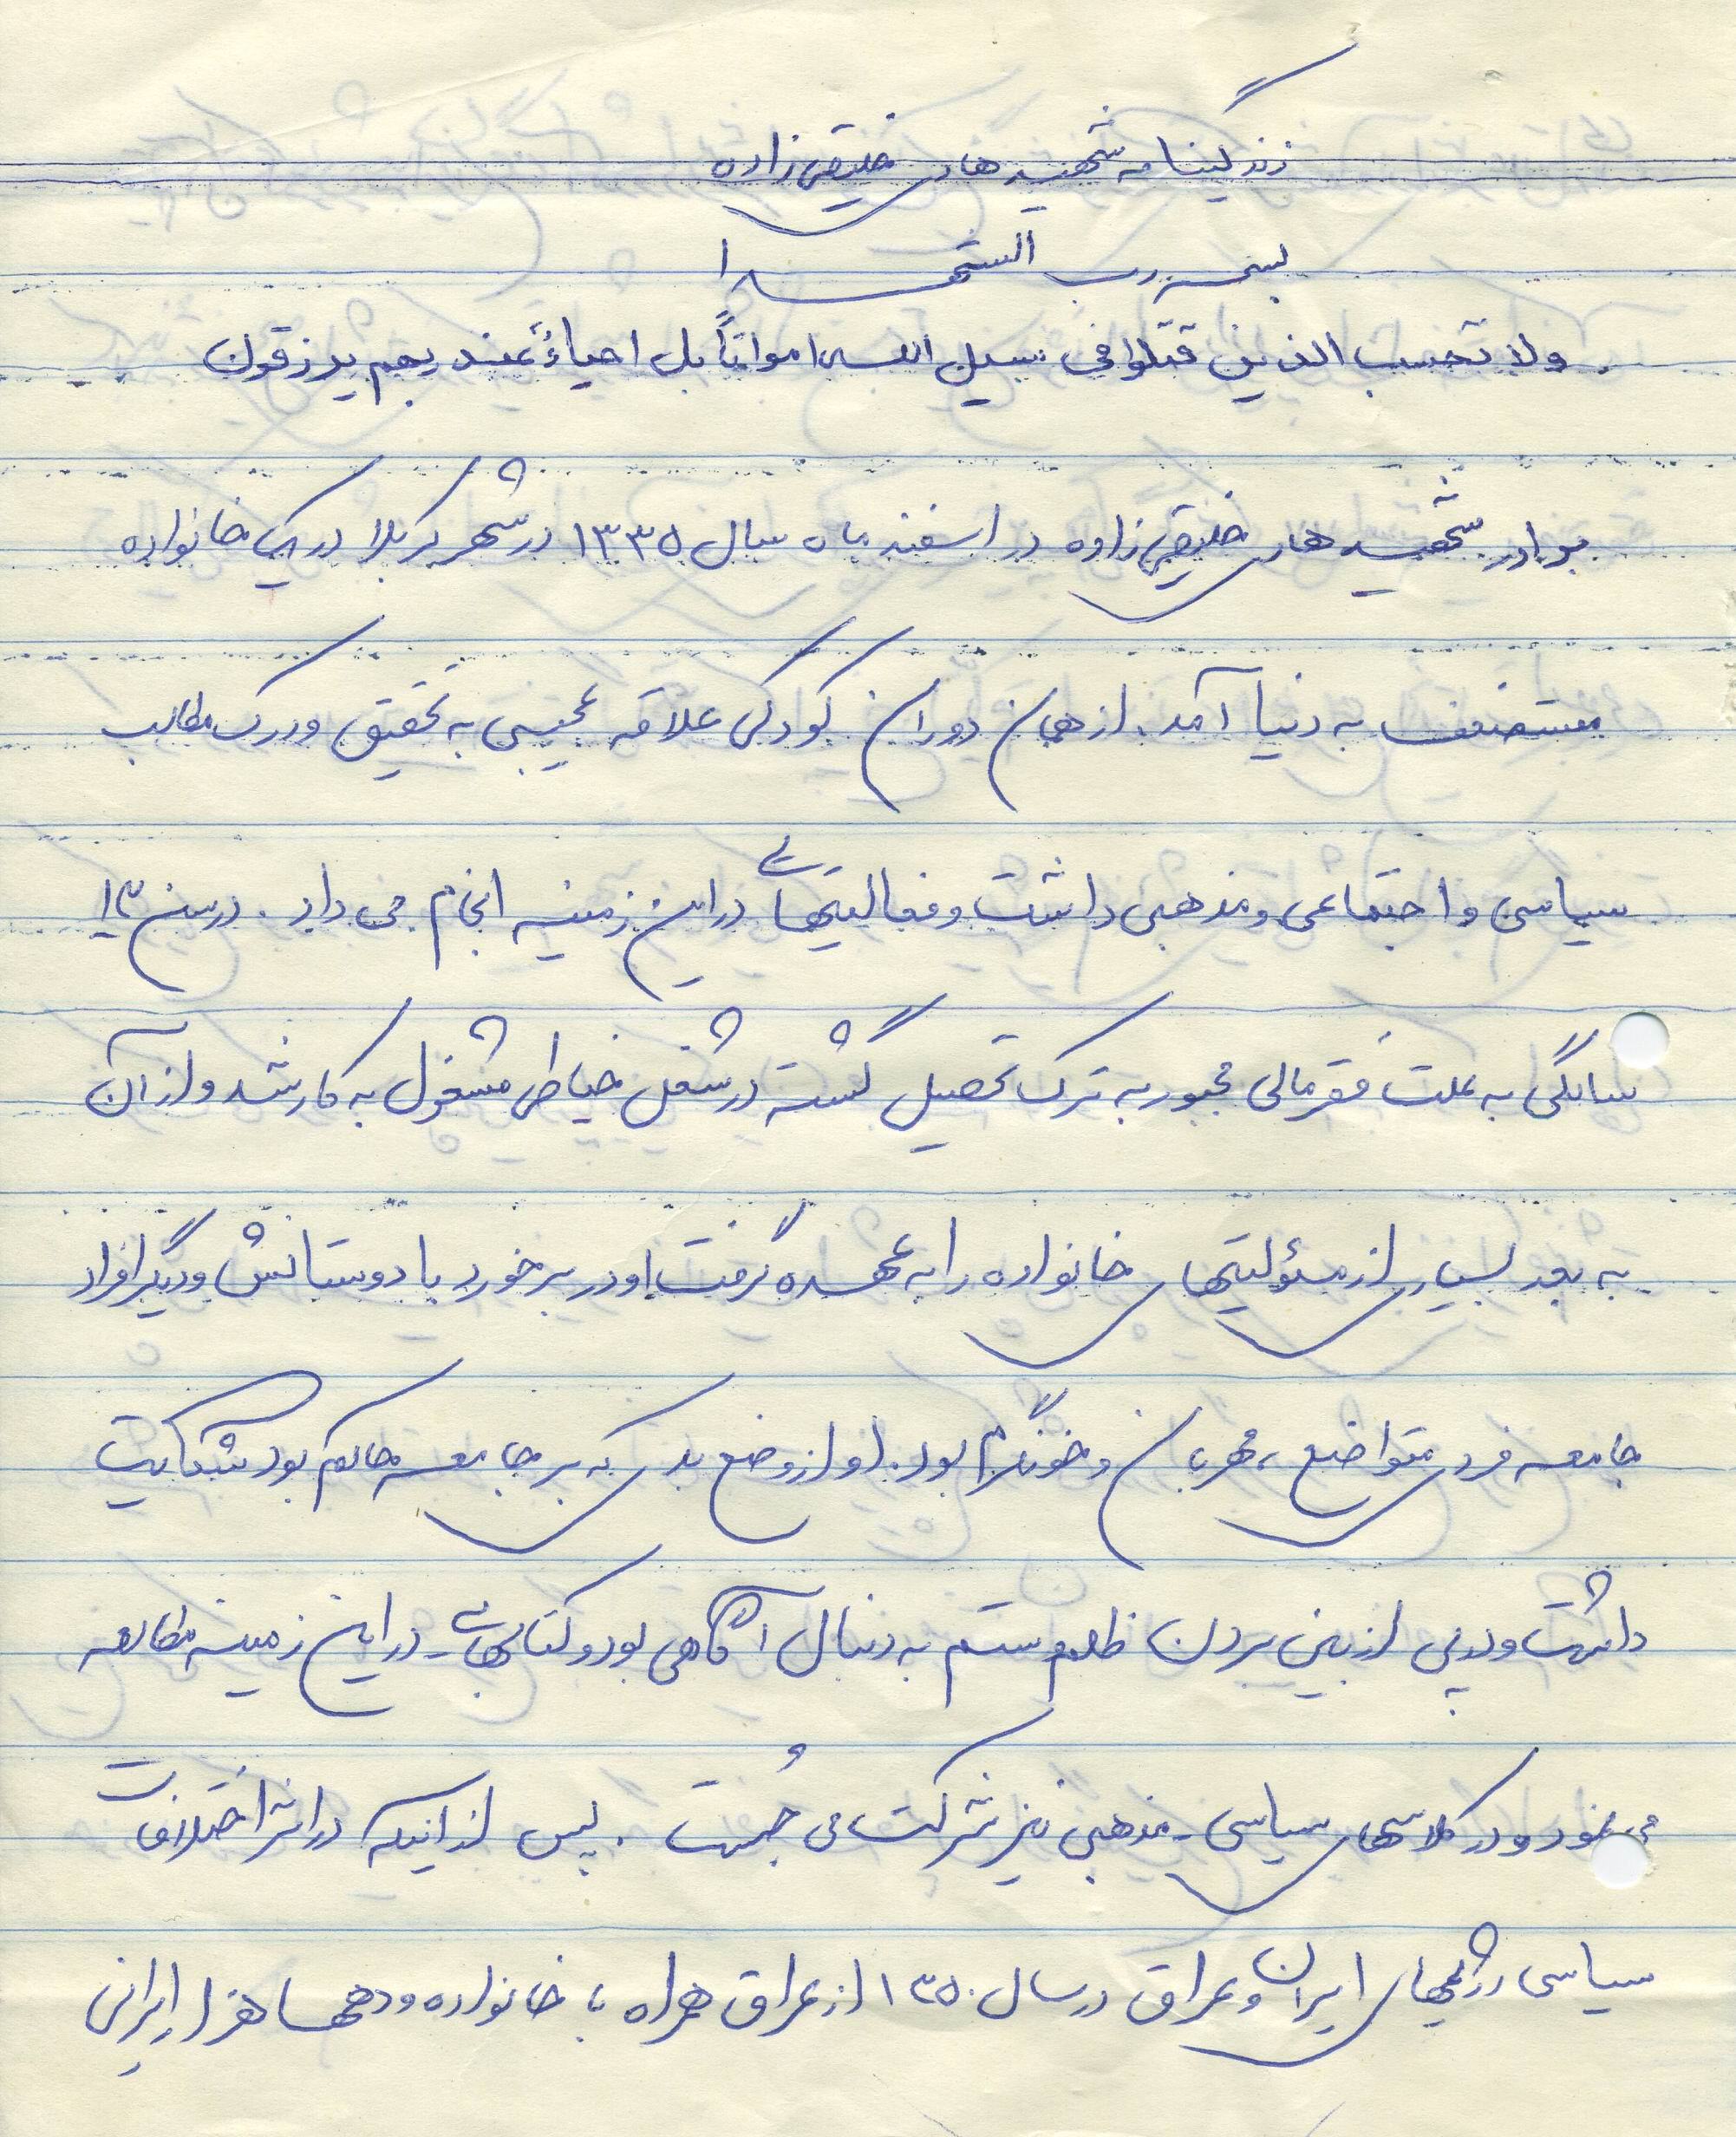 زندگینامه شهید هادی خلیقی زاده
بسم رب الشهدا
ولا تحسب الذین قتلوا فی سبیل الله امواتاً بل احیاءٌ عند ربهم یرزقون
برادر شهید هادی خلیقی زاده در اسفند ماه سال ۱۳۳۵ در شهر کربلا در یک خانواده
مستضعف به دنیا آمد. از همان دوران کودکی علاقه عجیبی به تحقیق و درک مطالب
سیاسی و اجتماعی و مذهبی داشت و فعالیتهایی در این زمینه انجام می داد. در سن ۱۲
سالگی به علت فقر مالی مجبور به ترک تحصیل گشته در شغل خیاطی مشغول به کار شد و از آن
به بعد بسیاری از مسئولیتهای خانواده را به عهده گرفت او در برخورد با دوستانش و دیگر افراد
جامعه فردی متواضع، مهربان و خونگرم بود. او از وضع بدی که بر جامعه حاکم بود شکایت
داشت و در پی از بین بردن ظلم و ستم به دنبال آگاهی بود و کتابهایی در این زمینه مطالعه
می نمود و در کلاسهای سیاسی - مذهبی نیز شرکت می جُست. پس از اینکه در اثر اختلافات
سیاسی رژیمهای ایران و عراق در سال ۱۳۵۰ از عراق همراه با خانواده و دهها هزار ایرانی